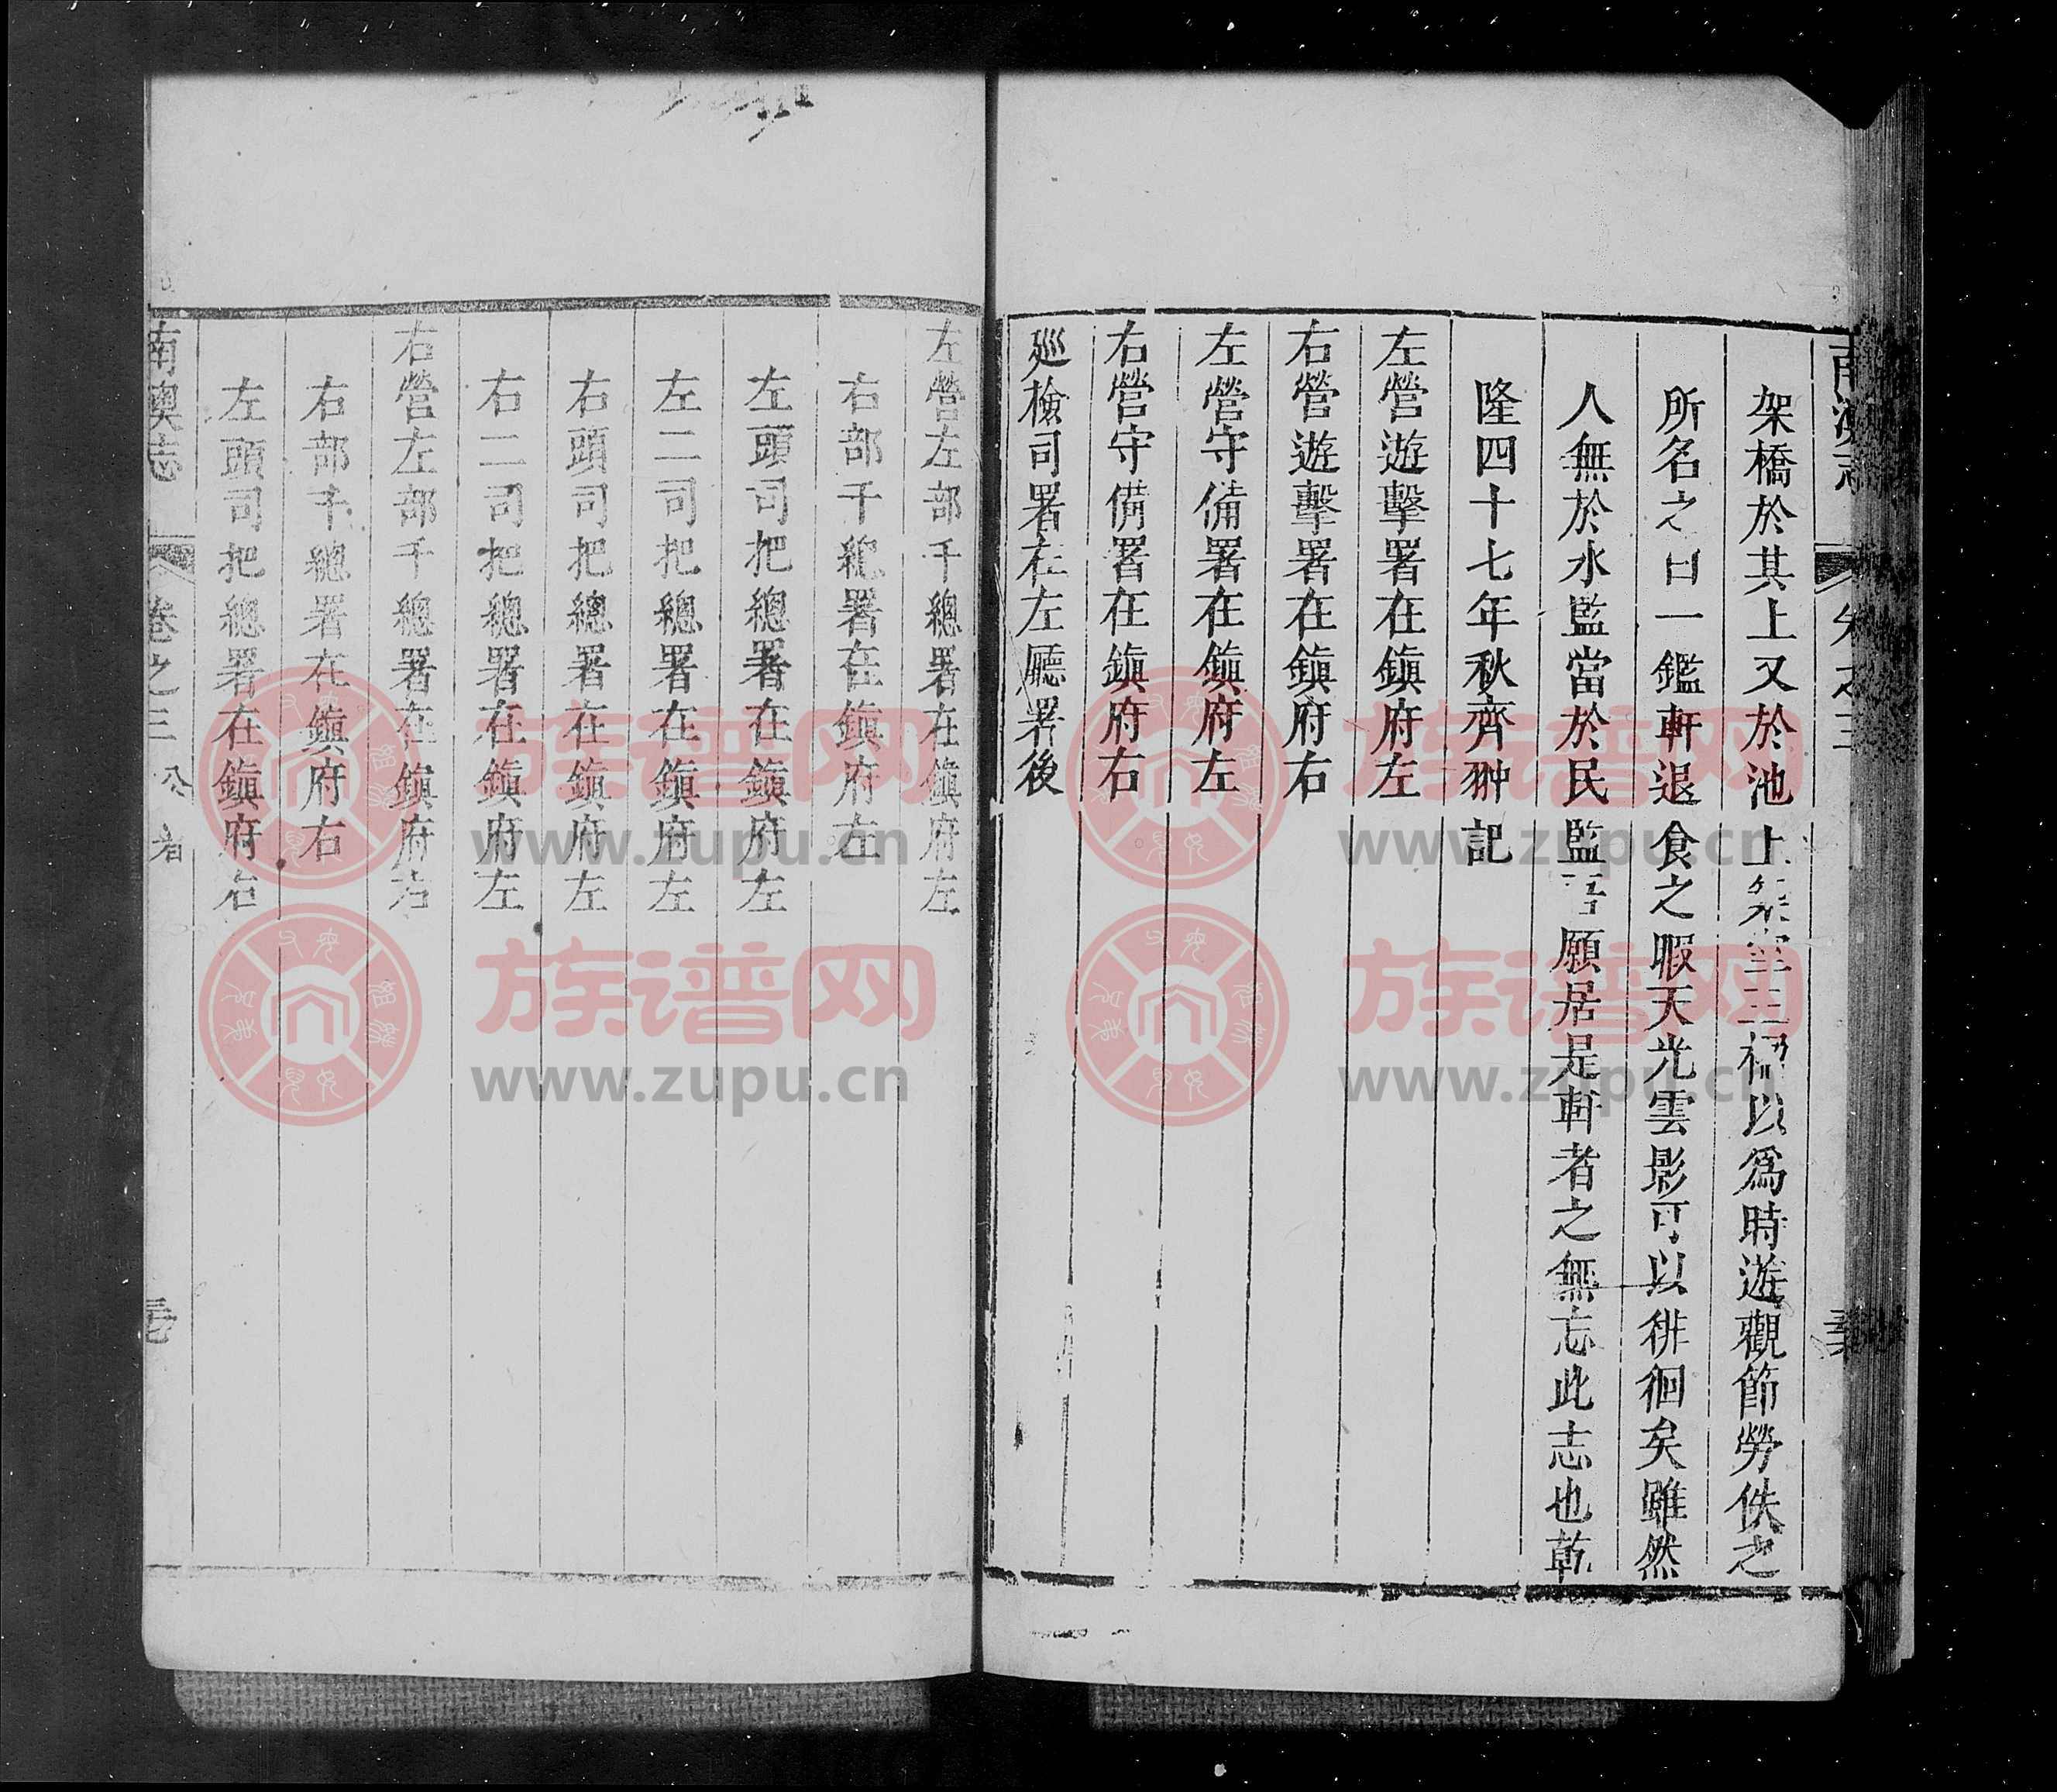 南澳志
卷之三
架橋於其上又於池上築室三楹以爲時遊觀節勞佚之
所名之曰一鑑軒退食之暇天光雲影可以徘徊矣雖然
人無於水監當於民監吾願居是軒者之無忘此志也乾
隆四十七年秋齊翀記
左營遊擊署在鎭府左
右營遊擊署在鎭府右
左營守備署在鎭府左
右營守備署在鎭府右
廵檢司署在左廳署後
左營左部千總署在鎭府左
右部千總署在鎭府左
左頭司把總署在鎭府左
左二司把總署在鎭府左
右頭司把總署在鎭府左
右二司把總署在鎭府左
右營左部千總署在鎭府右
右部千總署在鎭府右
左頭司把總署在鎭府右
南澳志
卷之三 公署
族谱网
www.zupu.cn
族谱网
www.zupu.cn
族谱网
www.zupu.cn
族谱网
www.zupu.cn